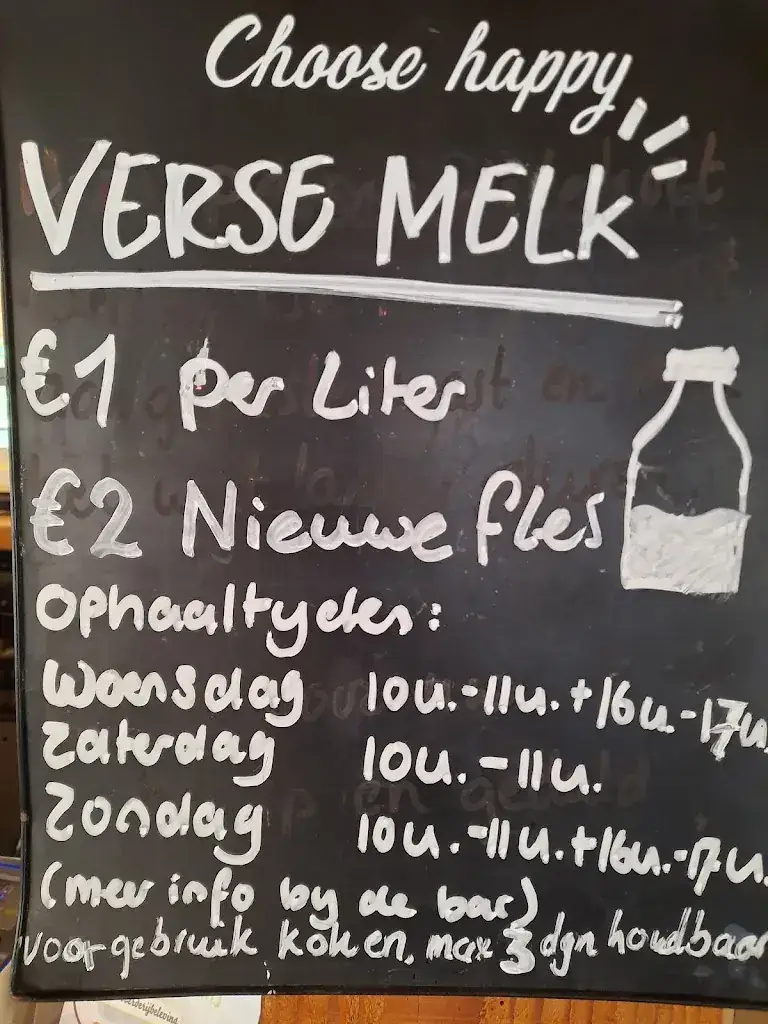 Choose happy
VERSE MELK
€1 per Liter
€2 Nieuwe fles
Ophaaltyden:
Woensdag 10u.-11u.+16u.-17u.
Zaterdag 10u.-11u.
Zondag 10u.-11u.+16u.-17u.
(meer info by de bar)
voor gebruik koken, max 3 dgn houdbaar